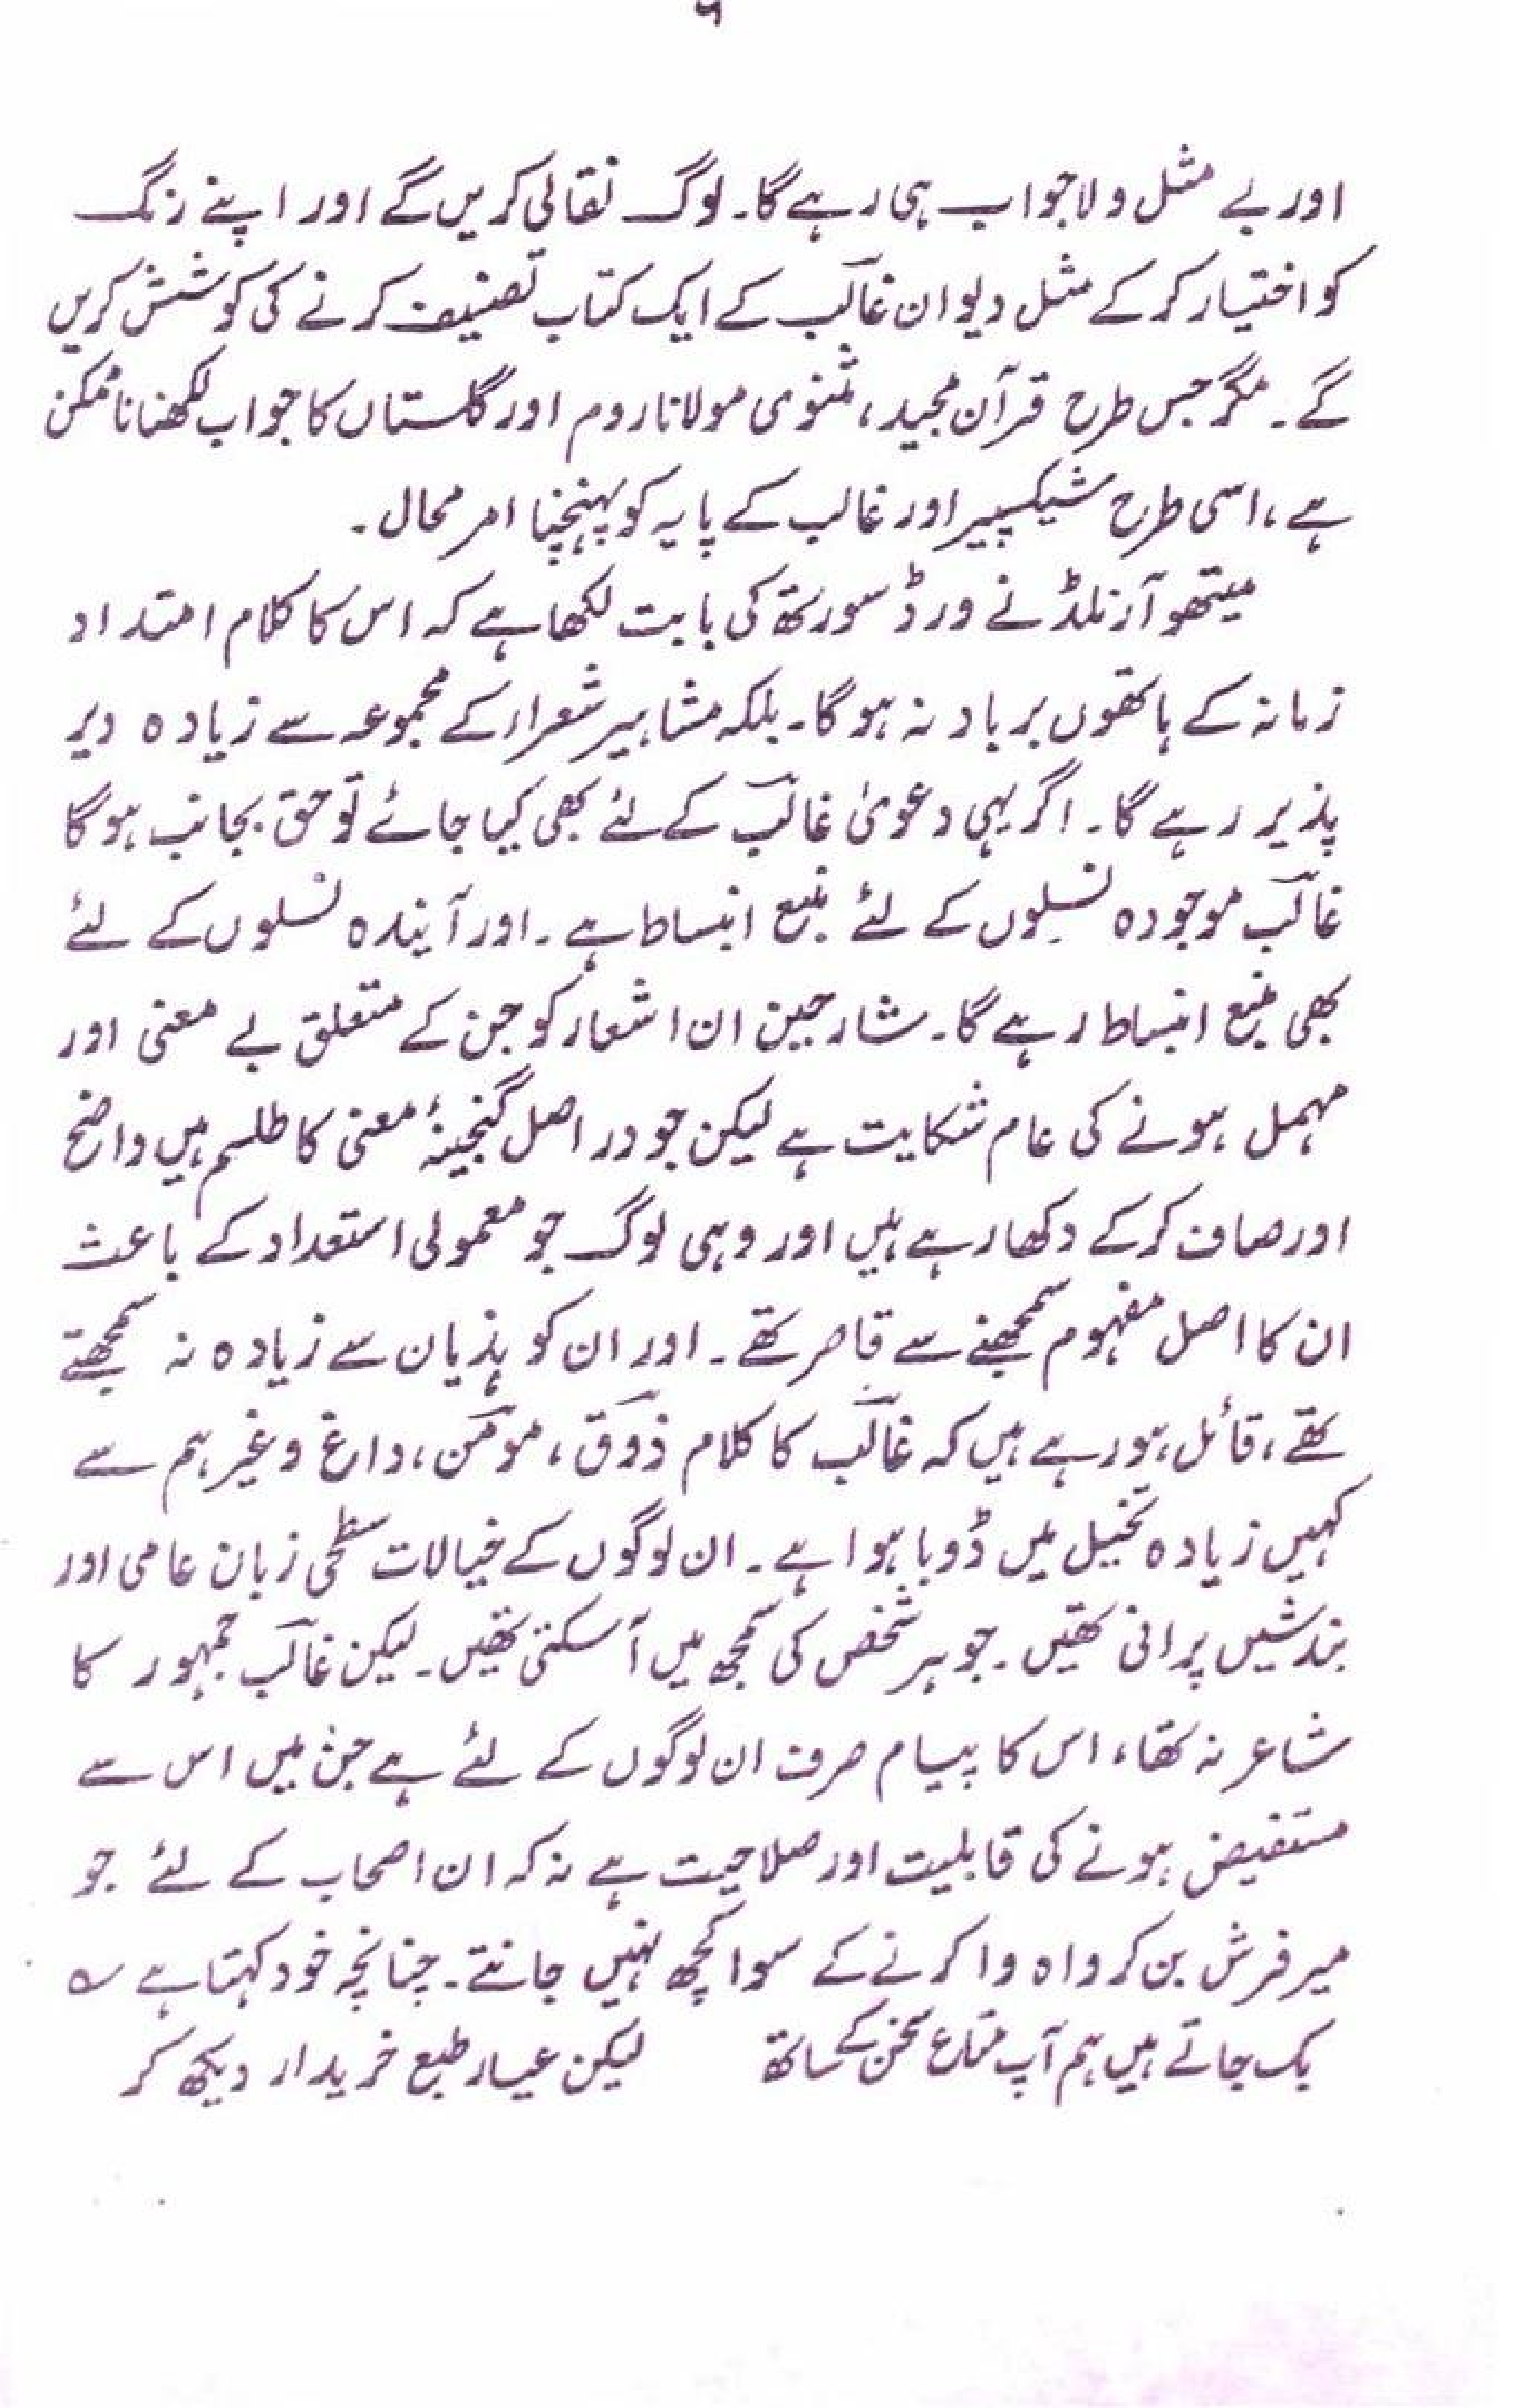 ۶
اور بے مثل و لاجواب ہی رہے گا۔ لوگ نقالی کریں گے اور اپنے رنگ
کو اختیار کر کے مثل دیوان غالبؔ کے ایک کتاب تصنیف کرنے کی کوشش کریں
گے۔ مگر جس طرح قرآن مجید، مثنوی مولانا روم اور گلستاں کا جواب لکھنا ناممکن
ہے، اسی طرح شیکسپیر اور غالب کے پایہ کو پہنچنا امر محال۔
میتھو آرنلڈ نے ورڈسورتھ کی بابت لکھا ہے کہ اس کا کلام امتداد
زمانہ کے ہاتھوں برباد نہ ہوگا۔ بلکہ مشاہیر شعراء کے مجموعہ سے زیادہ دیر
پذیر رہے گا۔ اگر یہی دعویٰ غالبؔ کے لئے بھی کیا جائے تو حق بجانب ہوگا
غالبؔ موجودہ نسلوں کے لئے منبع انبساط ہے۔ اور آیندہ نسلوں کے لئے
بھی منبع انبساط رہے گا۔ شارحین ان اشعار کو جن کے متعلق بے معنی اور
مہمل ہونے کی عام شکایت ہے لیکن جو در اصل گنجینۂ معنی کا طلسم ہیں واضح
اور صاف کر کے دکھا رہے ہیں اور وہی لوگ جو معمولی استعداد کے باعث
ان کا اصل مفہوم سمجھنے سے قاصر تھے۔ اور ان کو ہذیان سے زیادہ نہ سمجھتے
تھے، قائل ہو رہے ہیں کہ غالبؔ کا کلام ذوقؔ، مومنؔ، داغ وغیرہم سے
کہیں زیادہ تخیل میں ڈوبا ہوا ہے۔ ان لوگوں کے خیالات سطحی زبان عامی اور
بندشیں پرانی تھیں۔ جو ہر شخص کی سمجھ میں آ سکتی تھیں۔ لیکن غالبؔ جمہور کا
شاعر نہ تھا، اس کا پیام صرف ان لوگوں کے لئے ہے جن میں اس سے
مستفیض ہونے کی قابلیت اور صلاحیت ہے نہ کہ ان اصحاب کے لئے جو
میر فرش بن کر واہ وا کرنے کے سوا کچھ نہیں جانتے۔ چنانچہ خود کہتا ہے ؎
بک جاتے ہیں ہم آپ متاع سخن کے ساتھ لیکن عیار طبع خریدار دیکھ کر